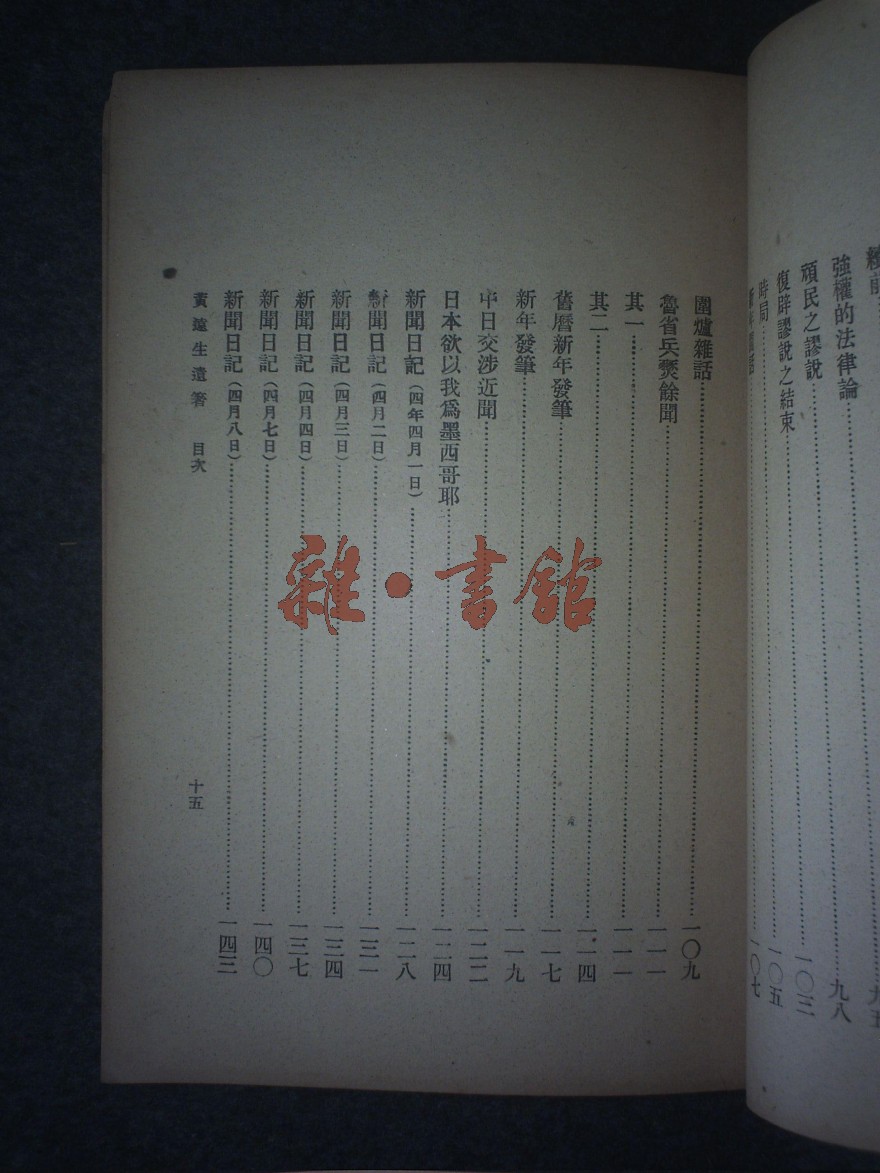 強權的法律論……九八
頑民之謬說……一〇三
復辟謬說之結束……一〇五
時局……一〇七
圍爐雜話……一〇九
魯省兵燹餘聞……一一一
其一……一一一
其二……一一四
舊曆新年發筆……一一七
新年發筆……一一九
中日交涉近聞……一二二
日本欲以我爲墨西哥耶……一二四
新聞日記(四年四月一日)……一二八
新聞日記(四月二日)……一三一
新聞日記(四月三日)……一三四
新聞日記(四月四日)……一三七
新聞日記(四月七日)……一四〇
新聞日記(四月八日)……一四三
黃遠生遺著 目次 十五
雜·書館